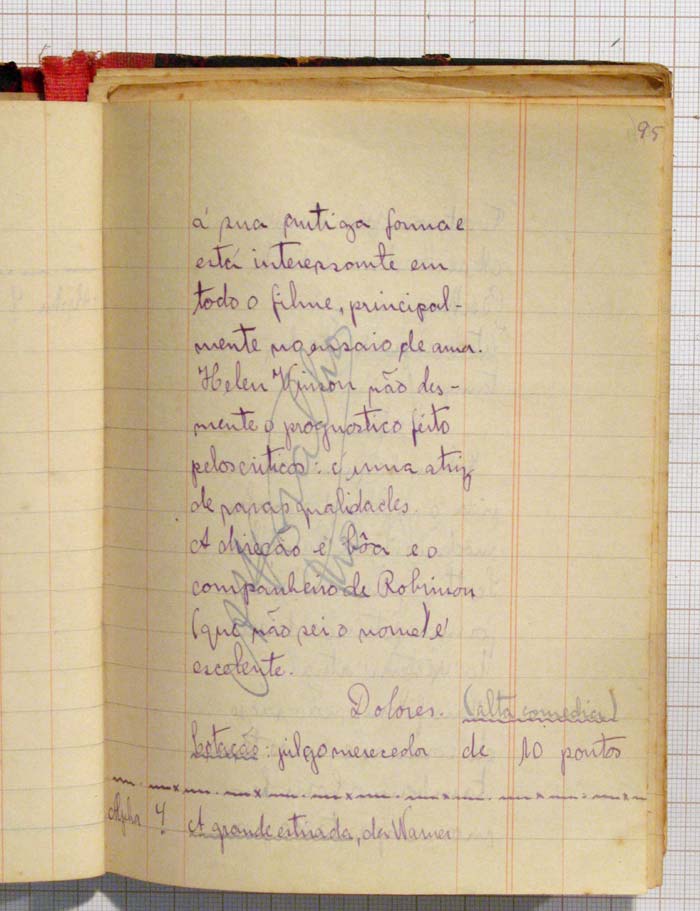 95
á sua antiga forma e
está interessante em
todo o filme, principal-
mente no ensaio de ama.
Helen Vinson não des-
mente o prognostico feito
pelos criticos: é uma atriz
de raras qualidades.
A direção é bôa e o
companheiro de Robinson
(que não sei o nome) é
escelente.
Dolores. (alta comedia)
Cotação: julgo merecedor de 10 pontos
Alpha 4 A grande estirada, da Warner